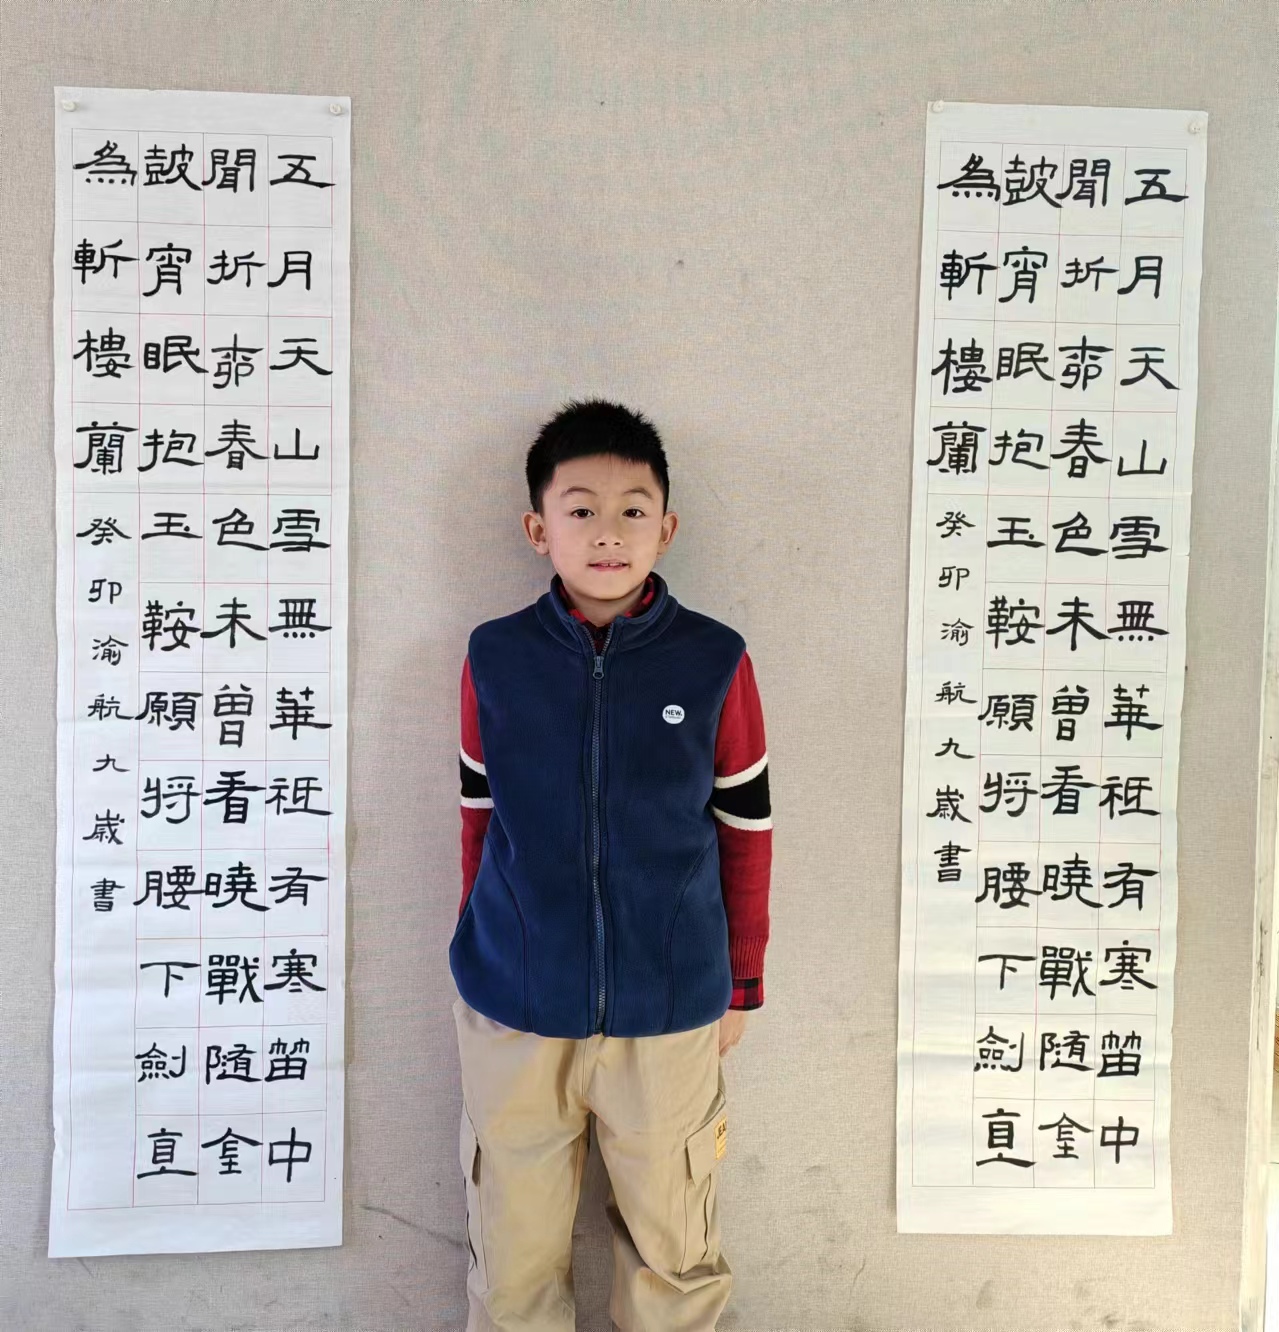 五月天山雪無華祇有寒笛中
聞折柳春色未曾看曉戰隨金
皷宵眠抱玉鞍願將腰下劍直
為斬樓蘭
癸卯渝航九歲書
五月天山雪無華祇有寒笛中
聞折柳春色未曾看曉戰隨金
皷宵眠抱玉鞍願將腰下劍直
為斬樓蘭
癸卯渝航九歲書
NEW.